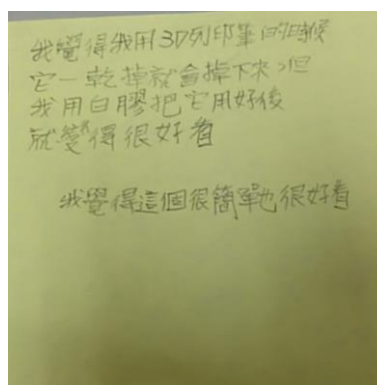 我覺得我用3D列印筆的時候
它一乾掉就會掉下來,但
我用白膠把它用好後
就變得很好看
我覺得這個很簡單也很好看